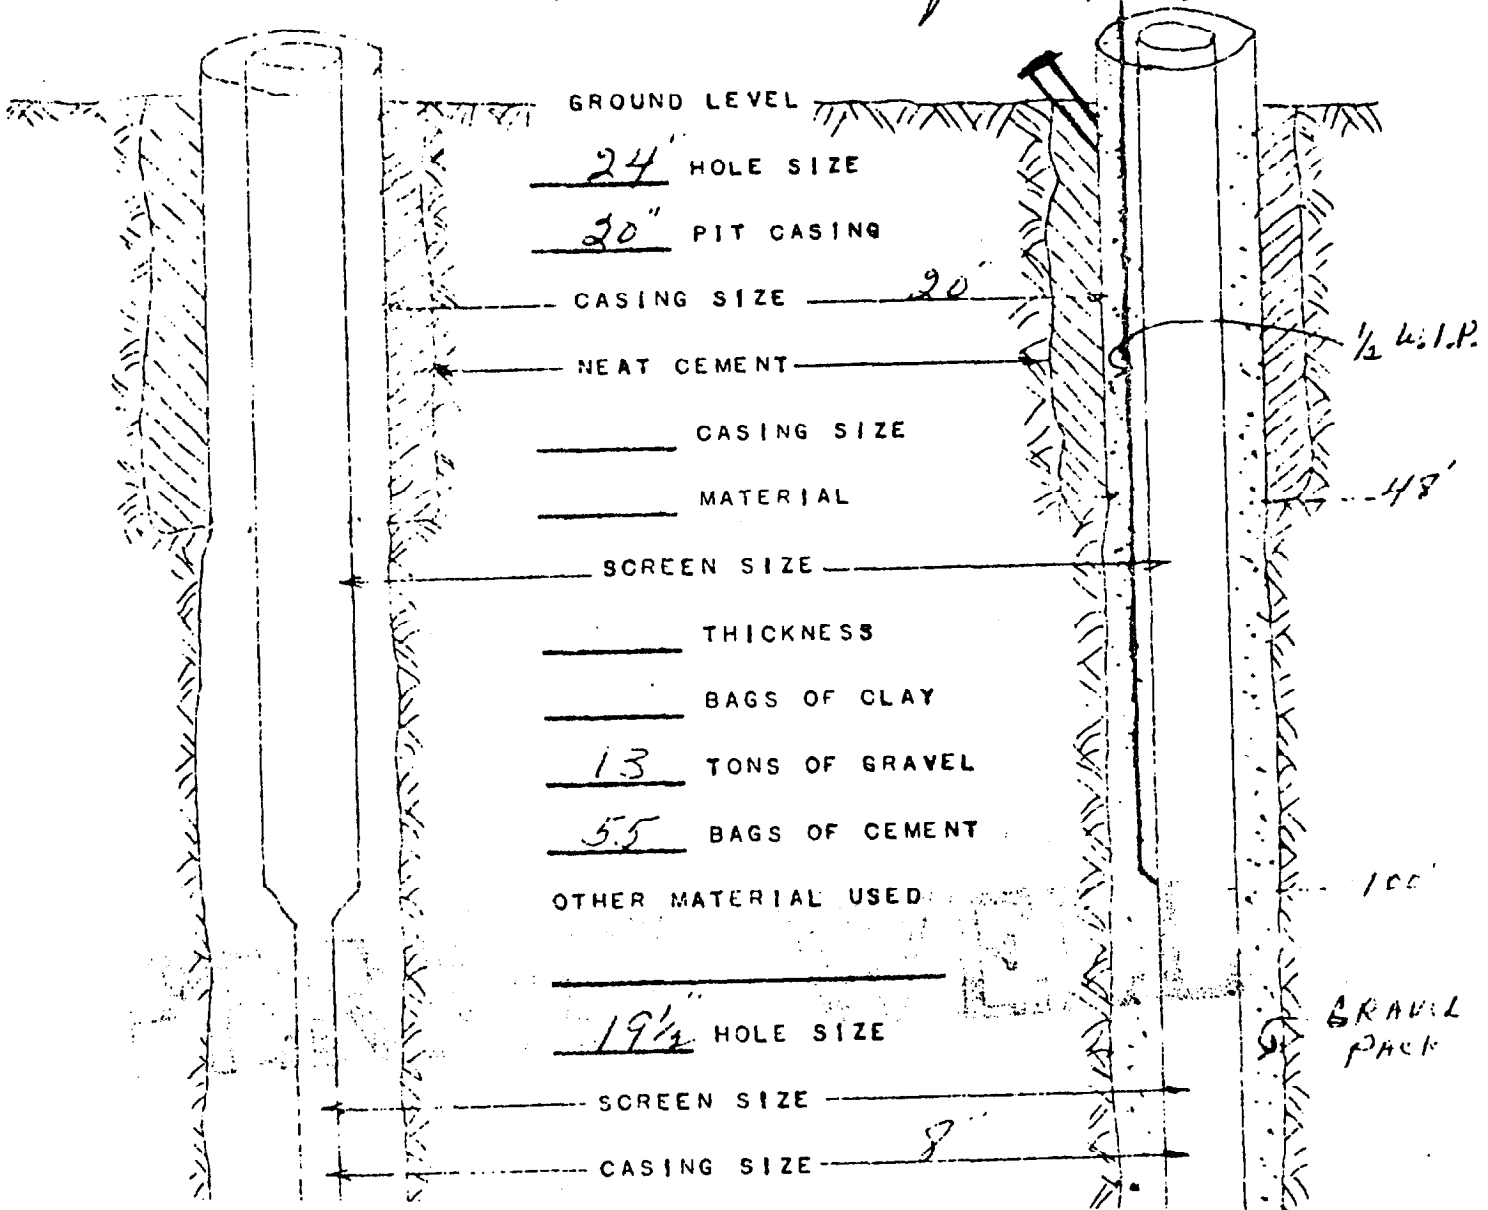 GROUND LEVEL
24' HOLE SIZE
20" PIT CASING
CASING SIZE 20"
NEAT CEMENT
1/2 W.I.P.
CASING SIZE
MATERIAL
48'
SCREEN SIZE
THICKNESS
BAGS OF CLAY
13 TONS OF GRAVEL
55 BAGS OF CEMENT
100'
OTHER MATERIAL USED
19 1/2" HOLE SIZE
GRAVEL
PACK
SCREEN SIZE
CASING SIZE 8"